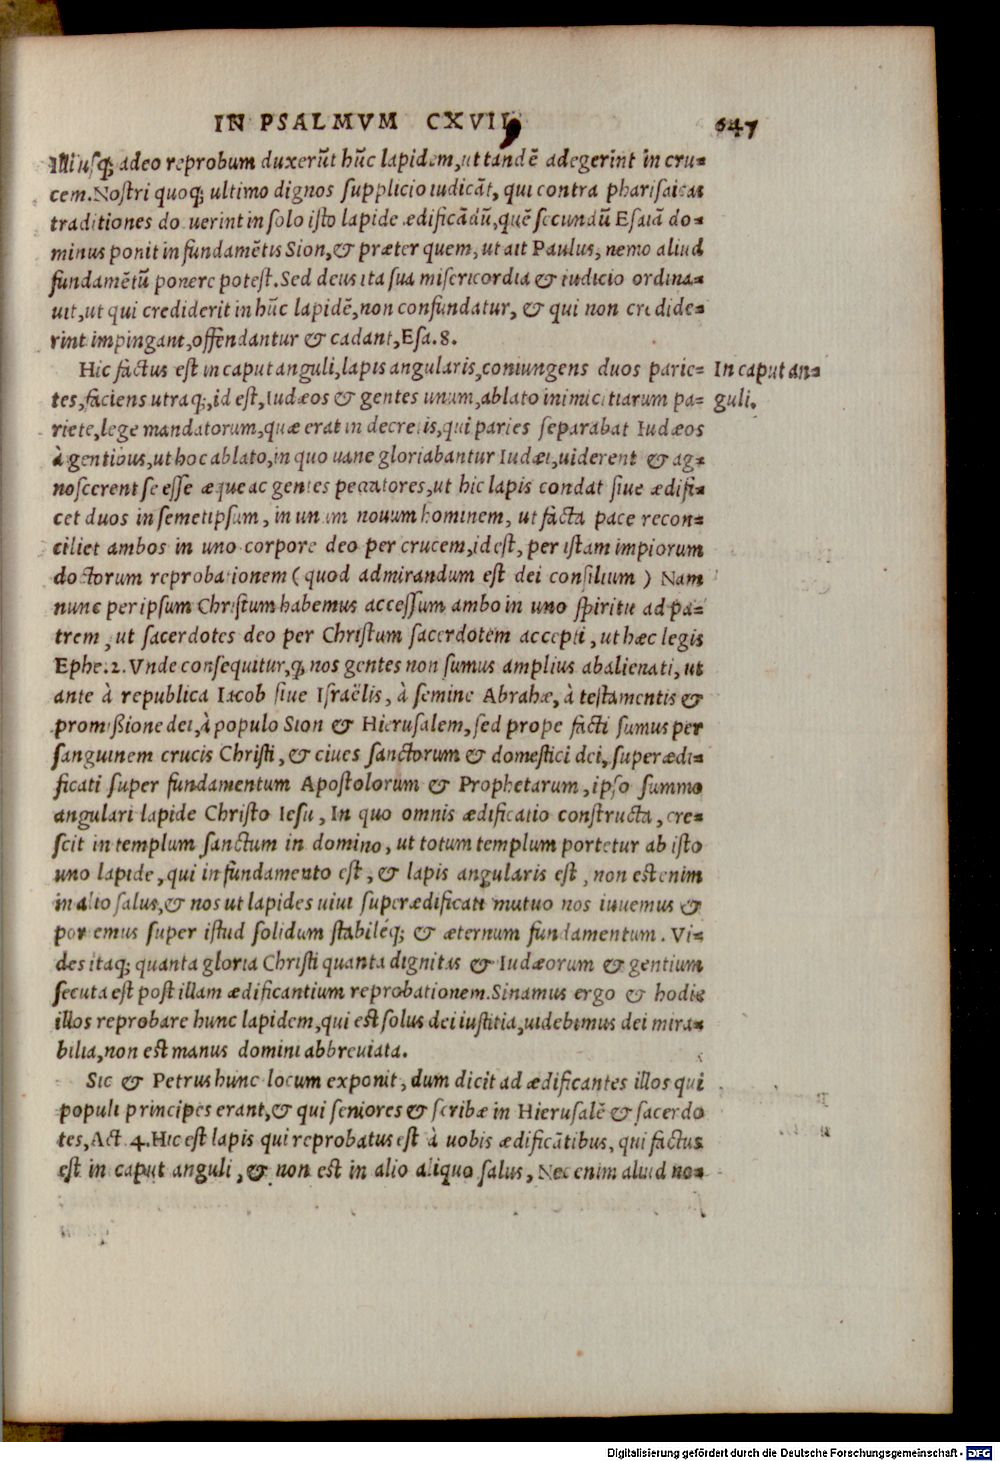 IN PSALMVM CXVII. 647
Illi usq; adeo reprobum duxerūt hūc lapidem, ut tandē adegerint in cru-
cem. Nostri quoq; ultimo dignos supplicio iudicāt, qui contra pharisaicas
traditiones docuerint in solo isto lapide ædificādū, quē secundū Esaiā do-
minus ponit in fundamētis Sion, & præter quem, ut ait Paulus, nemo aliud
fundamētū ponere potest. Sed deus ita sua misericordia & iudicio ordina-
uit, ut qui crediderit in hūc lapidē, non confundatur, & qui non credide-
rint impingant, offendantur & cadant, Esa. 8.
Hic factus est in caput anguli, lapis angularis, coniungens duos parie-
In caput an-
tes, faciens utraq;, id est, Iudæos & gentes unum, ablato inimicitiarum pa-
guli.
riete, lege mandatorum, quæ erat in decretis, qui paries separabat Iudæos
à gentibus, ut hoc ablato, in quo uane gloriabantur Iudæi, uiderent & ag-
noscerent se esse æque ac gentes peccatores, ut hic lapis condat siue ædifi-
cet duos in semetipsum, in unum nouum hominem, ut facta pace recon-
ciliet ambos in uno corpore deo per crucem, id est, per istam impiorum
doctorum reprobationem (quod admirandum est dei consilium) Nam
nunc per ipsum Christum habemus accessum ambo in uno spiritu ad pa-
trem, ut sacerdotes deo per Christum sacerdotem accepti, ut hæc legis
Ephe. 2. Vnde consequitur, q; nos gentes non sumus amplius abalienati, ut
ante à republica Iacob siue Israëlis, à semine Abrahæ, à testamentis &
promißione dei, à populo Sion & Hierusalem, sed prope facti sumus per
sanguinem crucis Christi, & ciues sanctorum & domestici dei, superædi-
ficati super fundamentum Apostolorum & Prophetarum, ipso summo
angulari lapide Christo Iesu, In quo omnis ædificatio constructa, cre-
scit in templum sanctum in domino, ut totum templum portetur ab isto
uno lapide, qui in fundamento est, & lapis angularis est, non est enim
in alio salus, & nos ut lapides uiui superædificati mutuo nos iuuemus &
portemus super istud solidum stabiléq; & æternum fundamentum. Vi-
des itaq; quanta gloria Christi quanta dignitas & Iudæorum & gentium
secuta est post illam ædificantium reprobationem. Sinamus ergo & hodie
illos reprobare hunc lapidem, qui est solus dei iustitia, uidebimus dei mira-
bilia, non est manus domini abbreuiata.
Sic & Petrus hunc locum exponit, dum dicit ad ædificantes illos qui
populi principes erant, & qui seniores & scribæ in Hierusalē & sacerdo
tes, Act. 4. Hic est lapis qui reprobatus est à uobis ædificātibus, qui factus
est in caput anguli, & non est in alio aliquo salus, Nec enim aliud no-
Digitalisierung gefördert durch die Deutsche Forschungsgemeinschaft - DFG